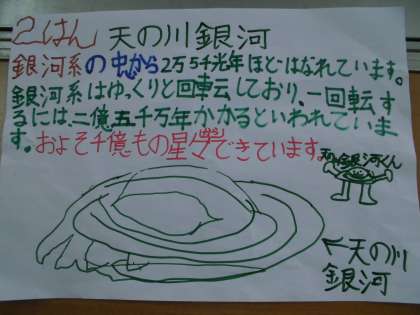 2はん 天の川銀河
銀河系の中心から2万5千光年ほどはなれています。
銀河系はゆっくりと回転しており、一回転す
るには、二億五千万年かかるといわれていま
す。およそ千億もの星々でできています。
天の川銀河くん
←天の川
銀河